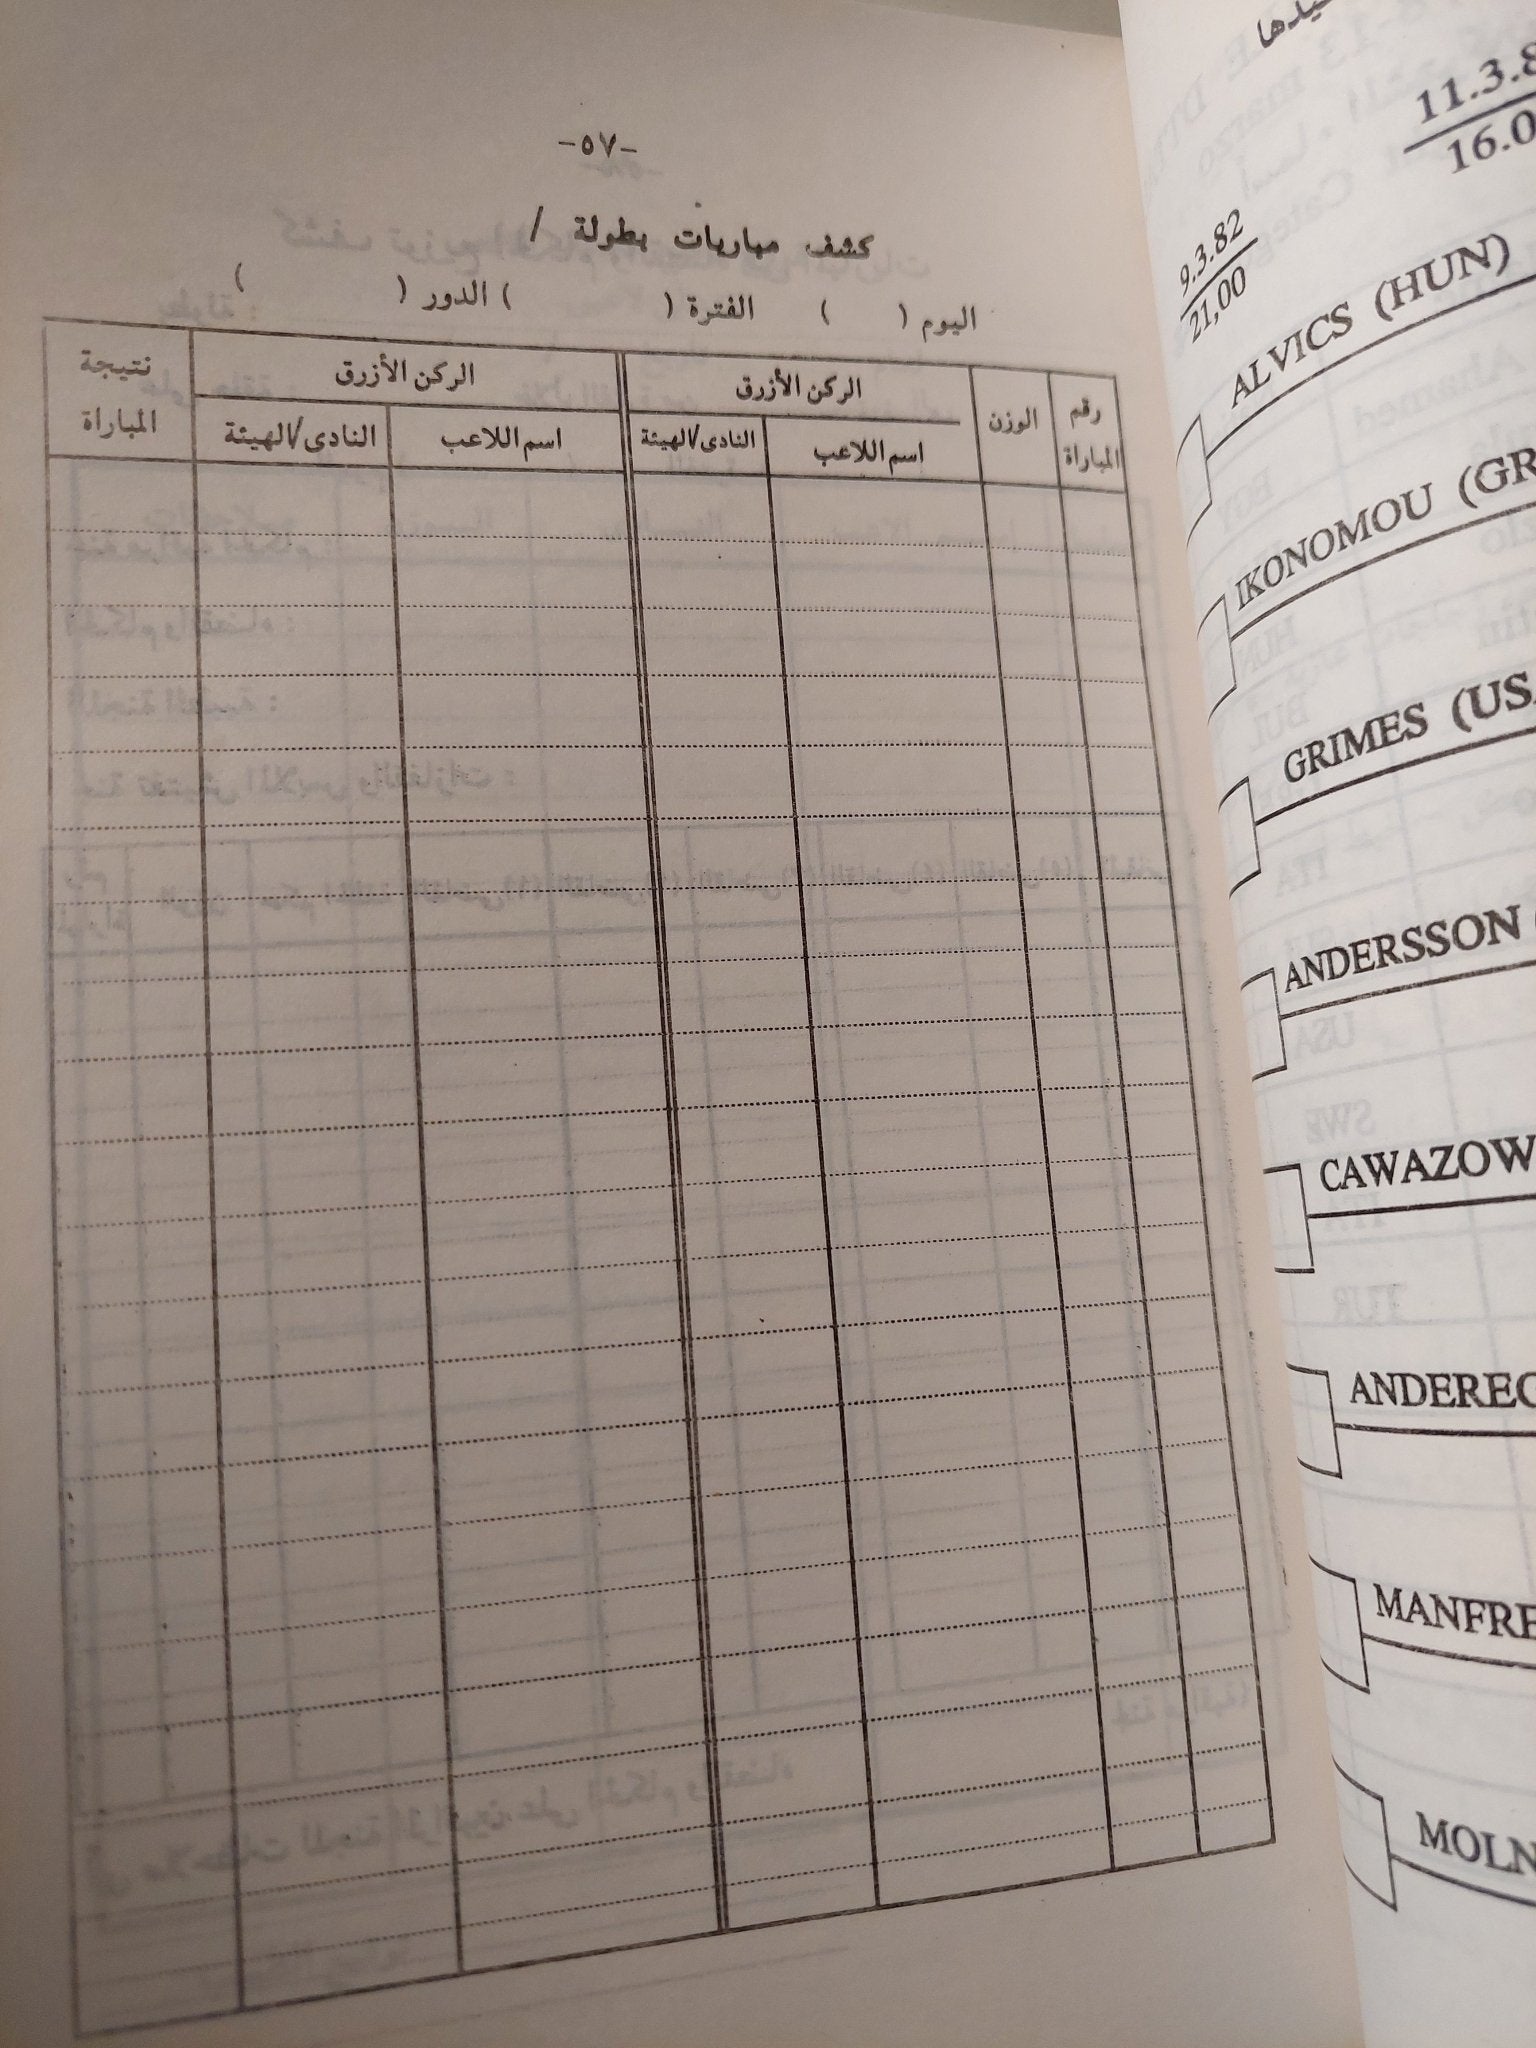 -٥٧-
كشف مباريات بطولة /
اليوم ( ) الفترة ( ) الدور ( )
رقم المباراة
الوزن
الركن الأزرق
اسم اللاعب
النادى/الهيئة
الركن الأزرق
اسم اللاعب
النادى/الهيئة
نتيجة المباراة
11.3.8
16.0
9.3.82
21,00
ALVICS (HUN)
IKONOMOU (GR
GRIMES (USA
ANDERSSON (
CAWAZOW
ANDEREG
MANFRE
MOLN